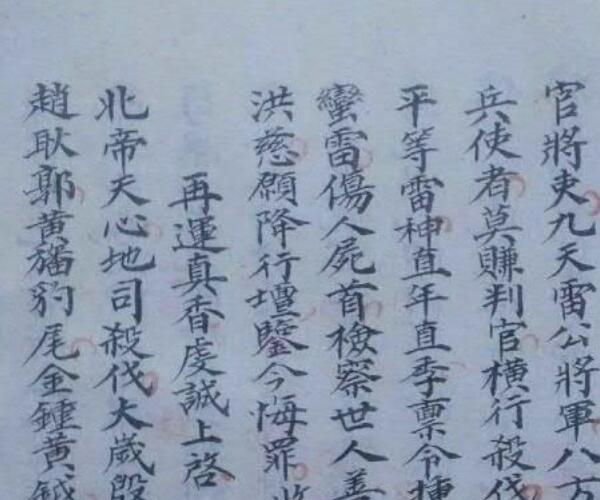 官將吏九天雷公將軍八方
兵使者莫賺判官橫行殺伐
平等雷神直年直季稟令捶
蠻雷傷人屍首檢察世人善
洪慈願降行壇鑒今悔罪
再運真香虔誠上啓
北帝天心地司殺伐大歲殷
趙耿郭黃旛豹尾金鍾黃鉞